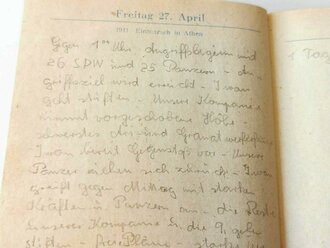 Freitag 27. April
1941 Einmarsch in Athen
Ggn 1°° Uhr Angriffsbeginn mit
26 SPW und 25 Panzern - An-
griffsziel wird erreicht - Iwan
geht stiften - Unsere Kompanie
nimmt vorgeschobene Höhe -
schwerstes Ari und Granatwerferfeuer
Iwan bereit Gegenstoß vor - Unsere
Panzer ziehen sich zurück - Iwan
greift gegen Mittag mit starken
Kräften u. Panzern an - die Reste
unserer Kompanie in die
stiften
1 Tag